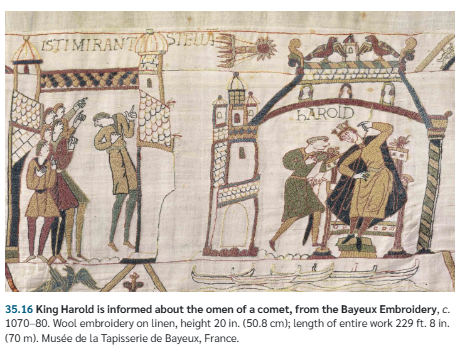 ISTI MIRANT STELLA
HAROLD
35.16 King Harold is informed about the omen of a comet, from the Bayeux Embroidery, c.
1070–80. Wool embroidery on linen, height 20 in. (50.8 cm); length of entire work 229 ft. 8 in.
(70 m). Musée de la Tapisserie de Bayeux, France.